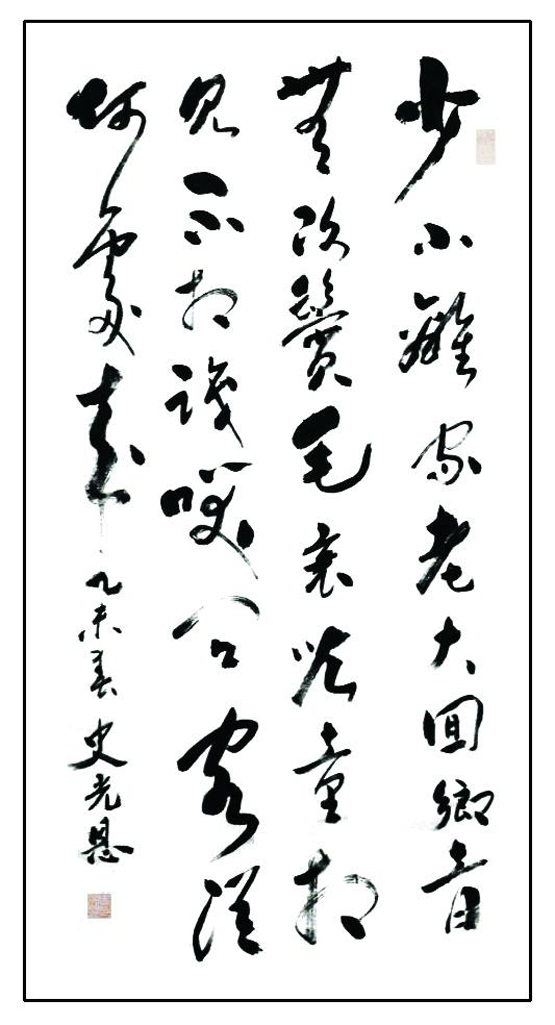 少小離家老大囬鄉音
無改鬢毛衰児童相
見不相識咲問客從
何處来 乙未春 史光恩